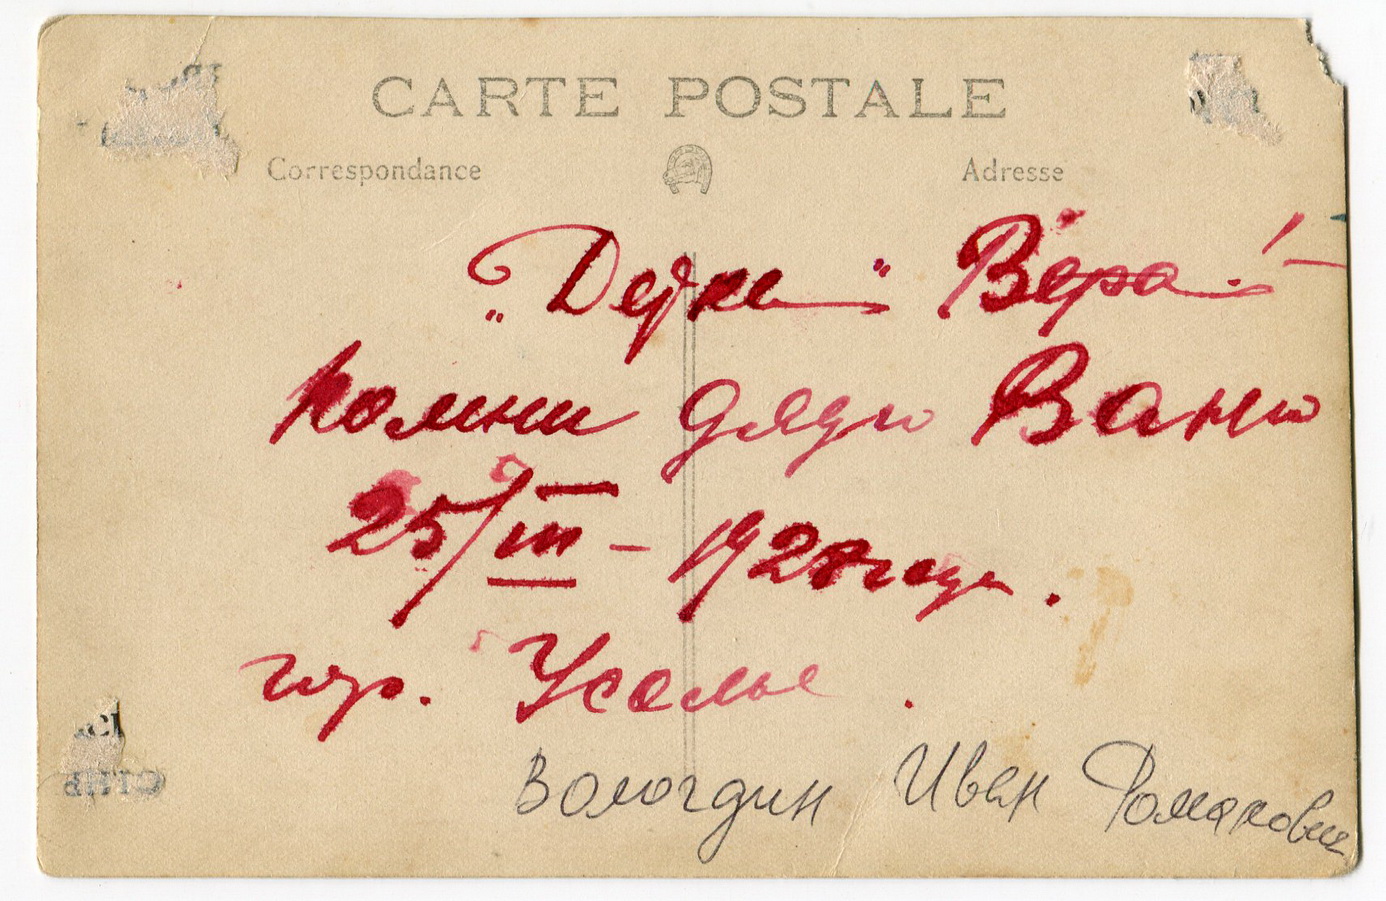 CARTE POSTALE
Correspondance Adresse
" Вера!–
помни дядю Ваню
25/III – 192 года.
гор. Усолье.
Вологдин Иван Романович